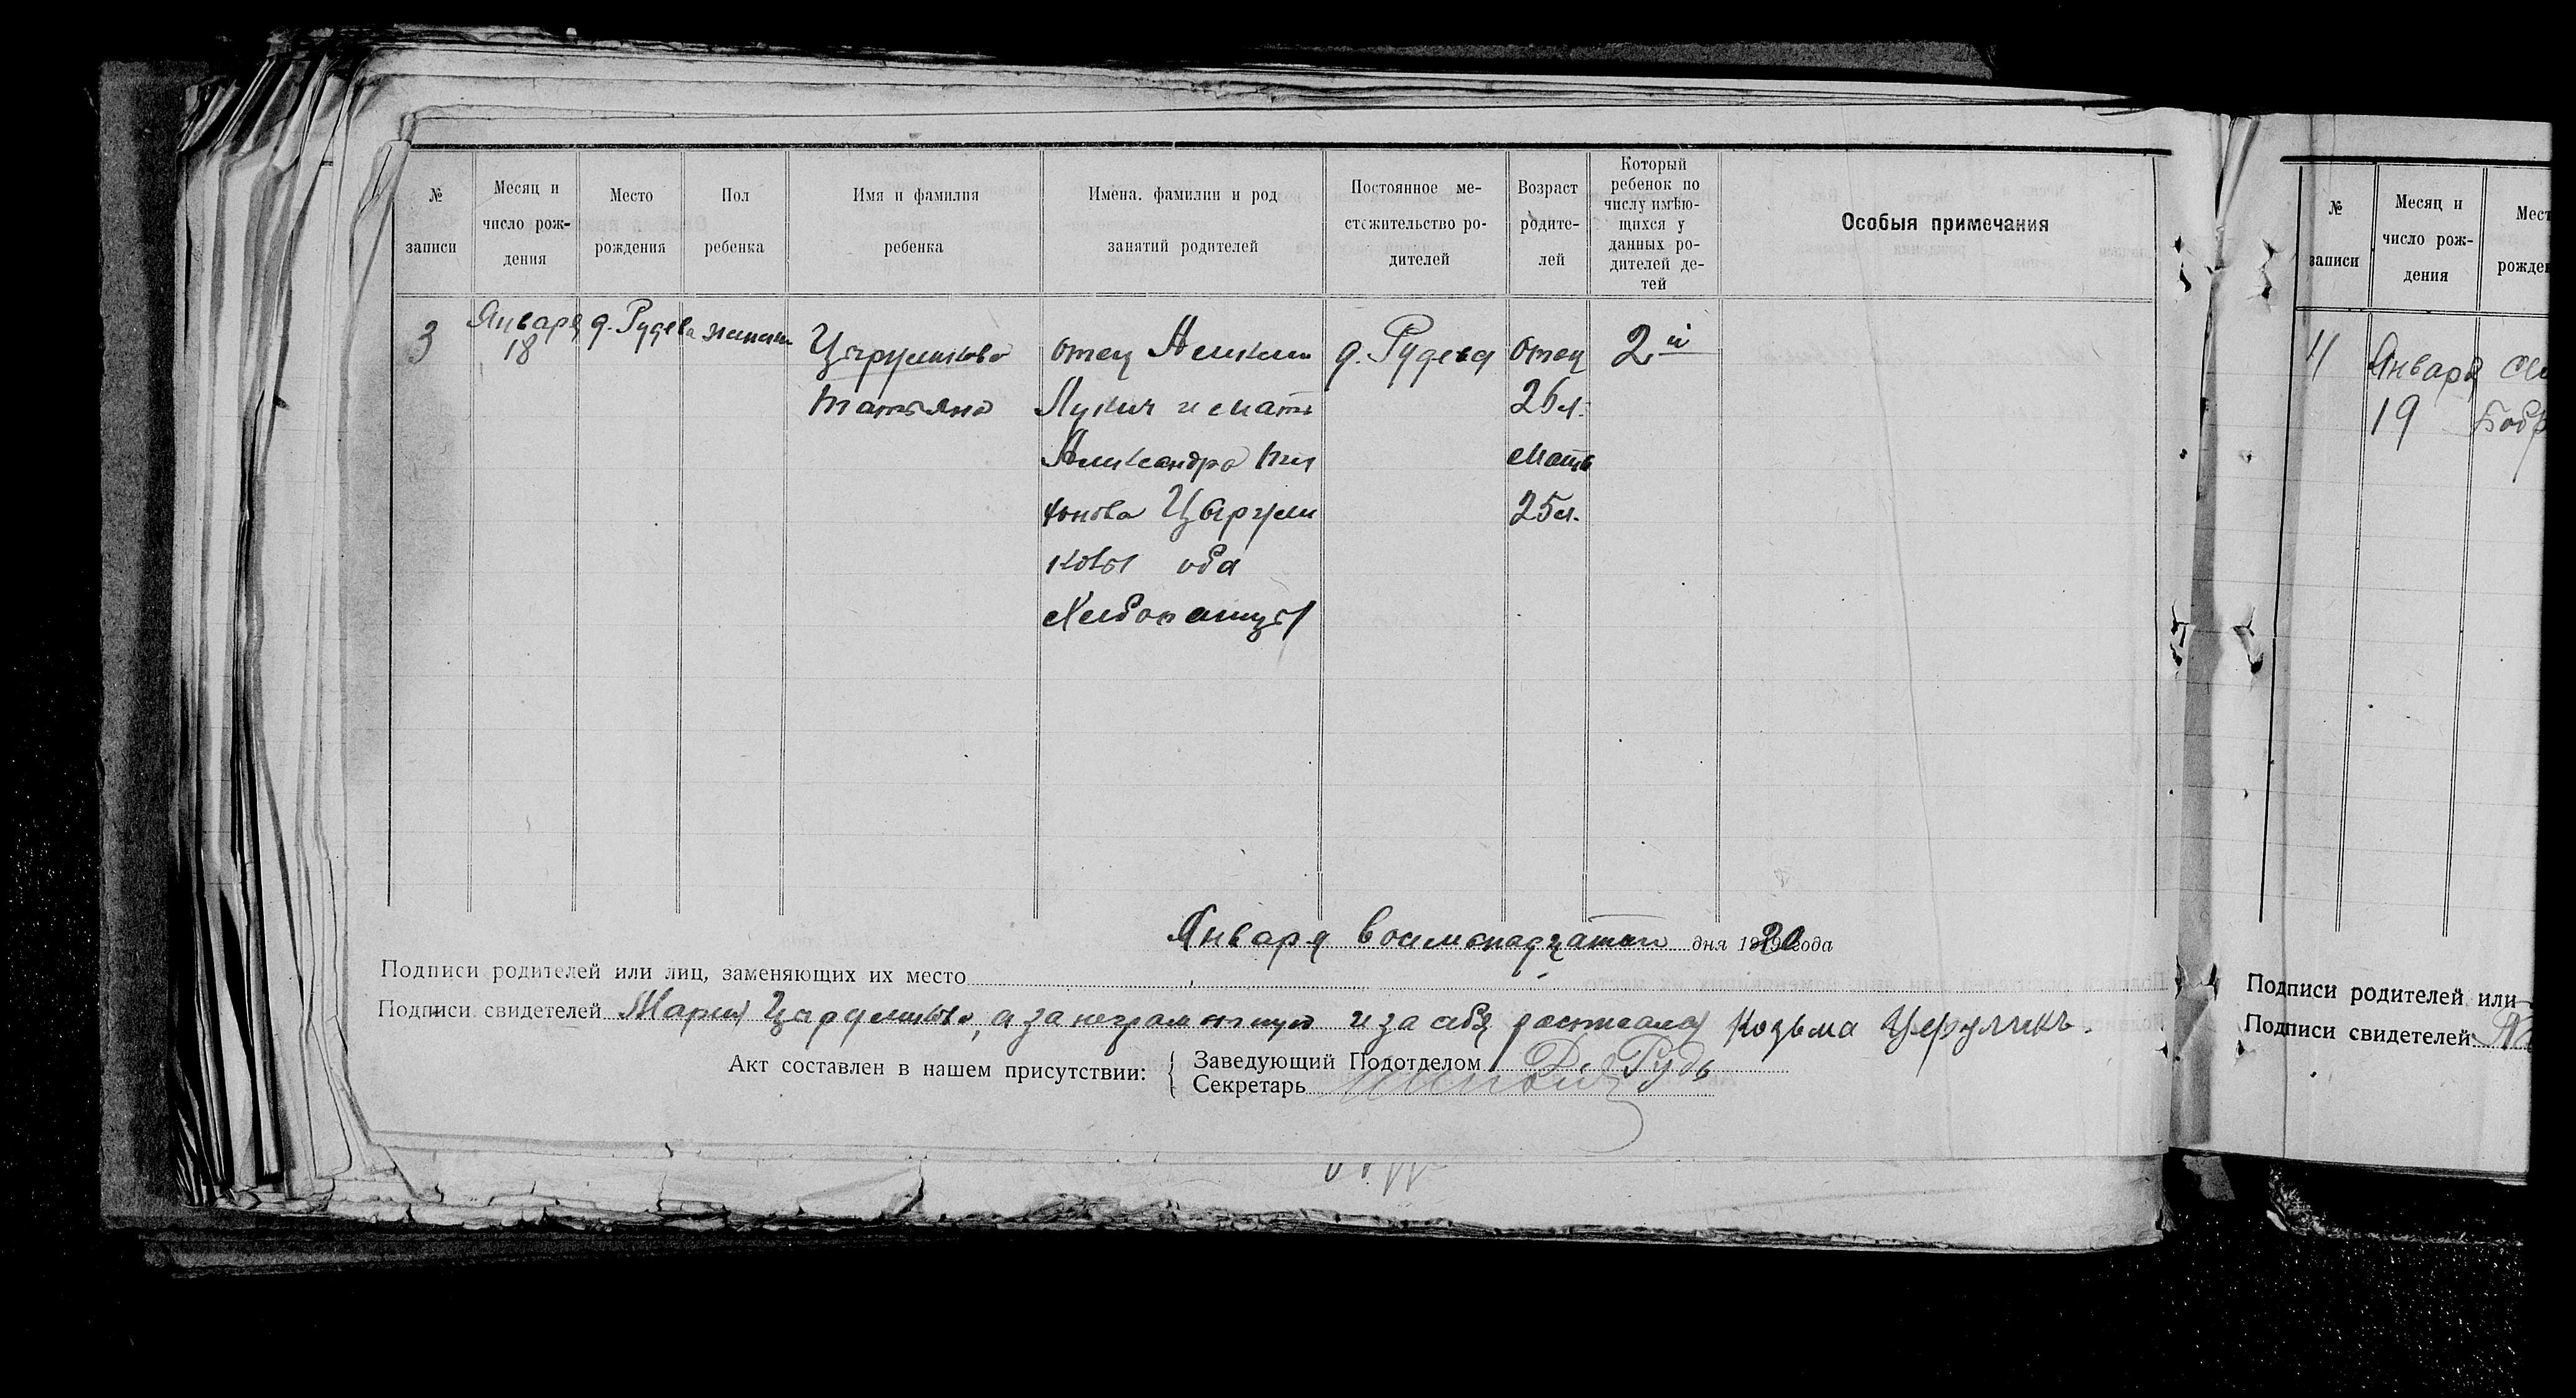 № записи
Месяц и число рождения
Место рождения
Пол ребенка
Имя и фамилия ребенка
Имена. фамилии и род занятий родителей
Постоянное местожительство родителей
Возраст родителей
Который ребенок по числу имѣющихся у данных родителей детей
Особыя примечания
3
Января
18
д. Рудева
женск
Татьяна
отец
Лукич и мать
Александра
оба
д. Рудева
отец
26 л.
мать
25 л.
2й
Января восемьнадцатаго дня 1920 года
Подписи родителей или лиц, заменяющих их место
Подписи свидетелей Мария, а за неграмотную и за себя Козьма
Акт составлен в нашем присутствии:
Заведующий Подотделом Рудь
Секретарь
№ записи
Месяц и число рождения
Мест
рожден
4
Января
19
Бобр
Подписи родителей или
Подписи свидетелей